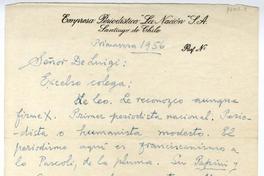 Empresa Periodística "La Nación" S.A.
Santiago de Chile
Primavera 1956
Ref. N
Señor De Luigi:
Excelso colega:
Le leo. Le reconozco aunque
firme X. Primer periodista nacional, Perio-
dista o humanista modesto. El
periodismo aquí es franciscanismo a
lo Pascoli, de la pluma. Un Papini y